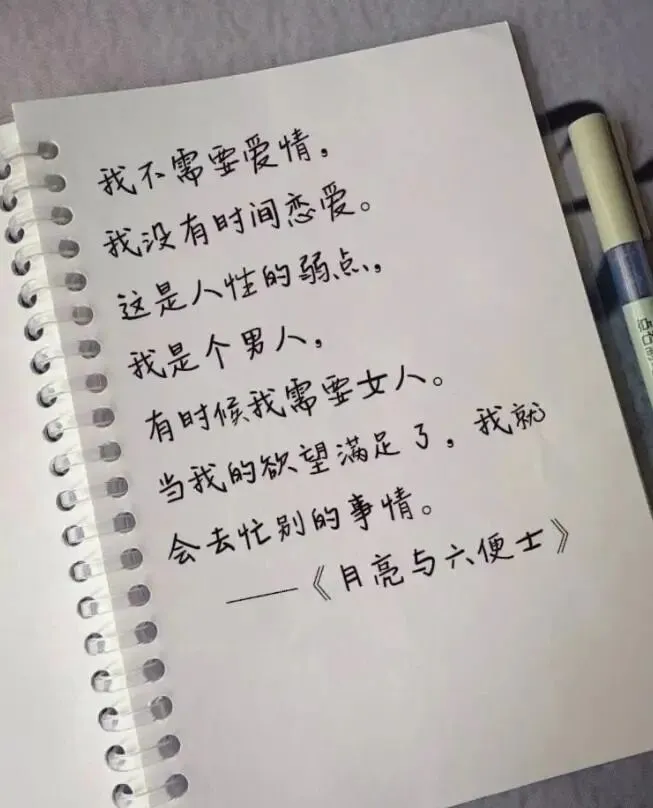 我不需要爱情，
我没有时间恋爱。
这是人性的弱点，
我是个男人，
有时候我需要女人。
当我的欲望满足了，我就
会去忙别的事情。
——《月亮与六便士》